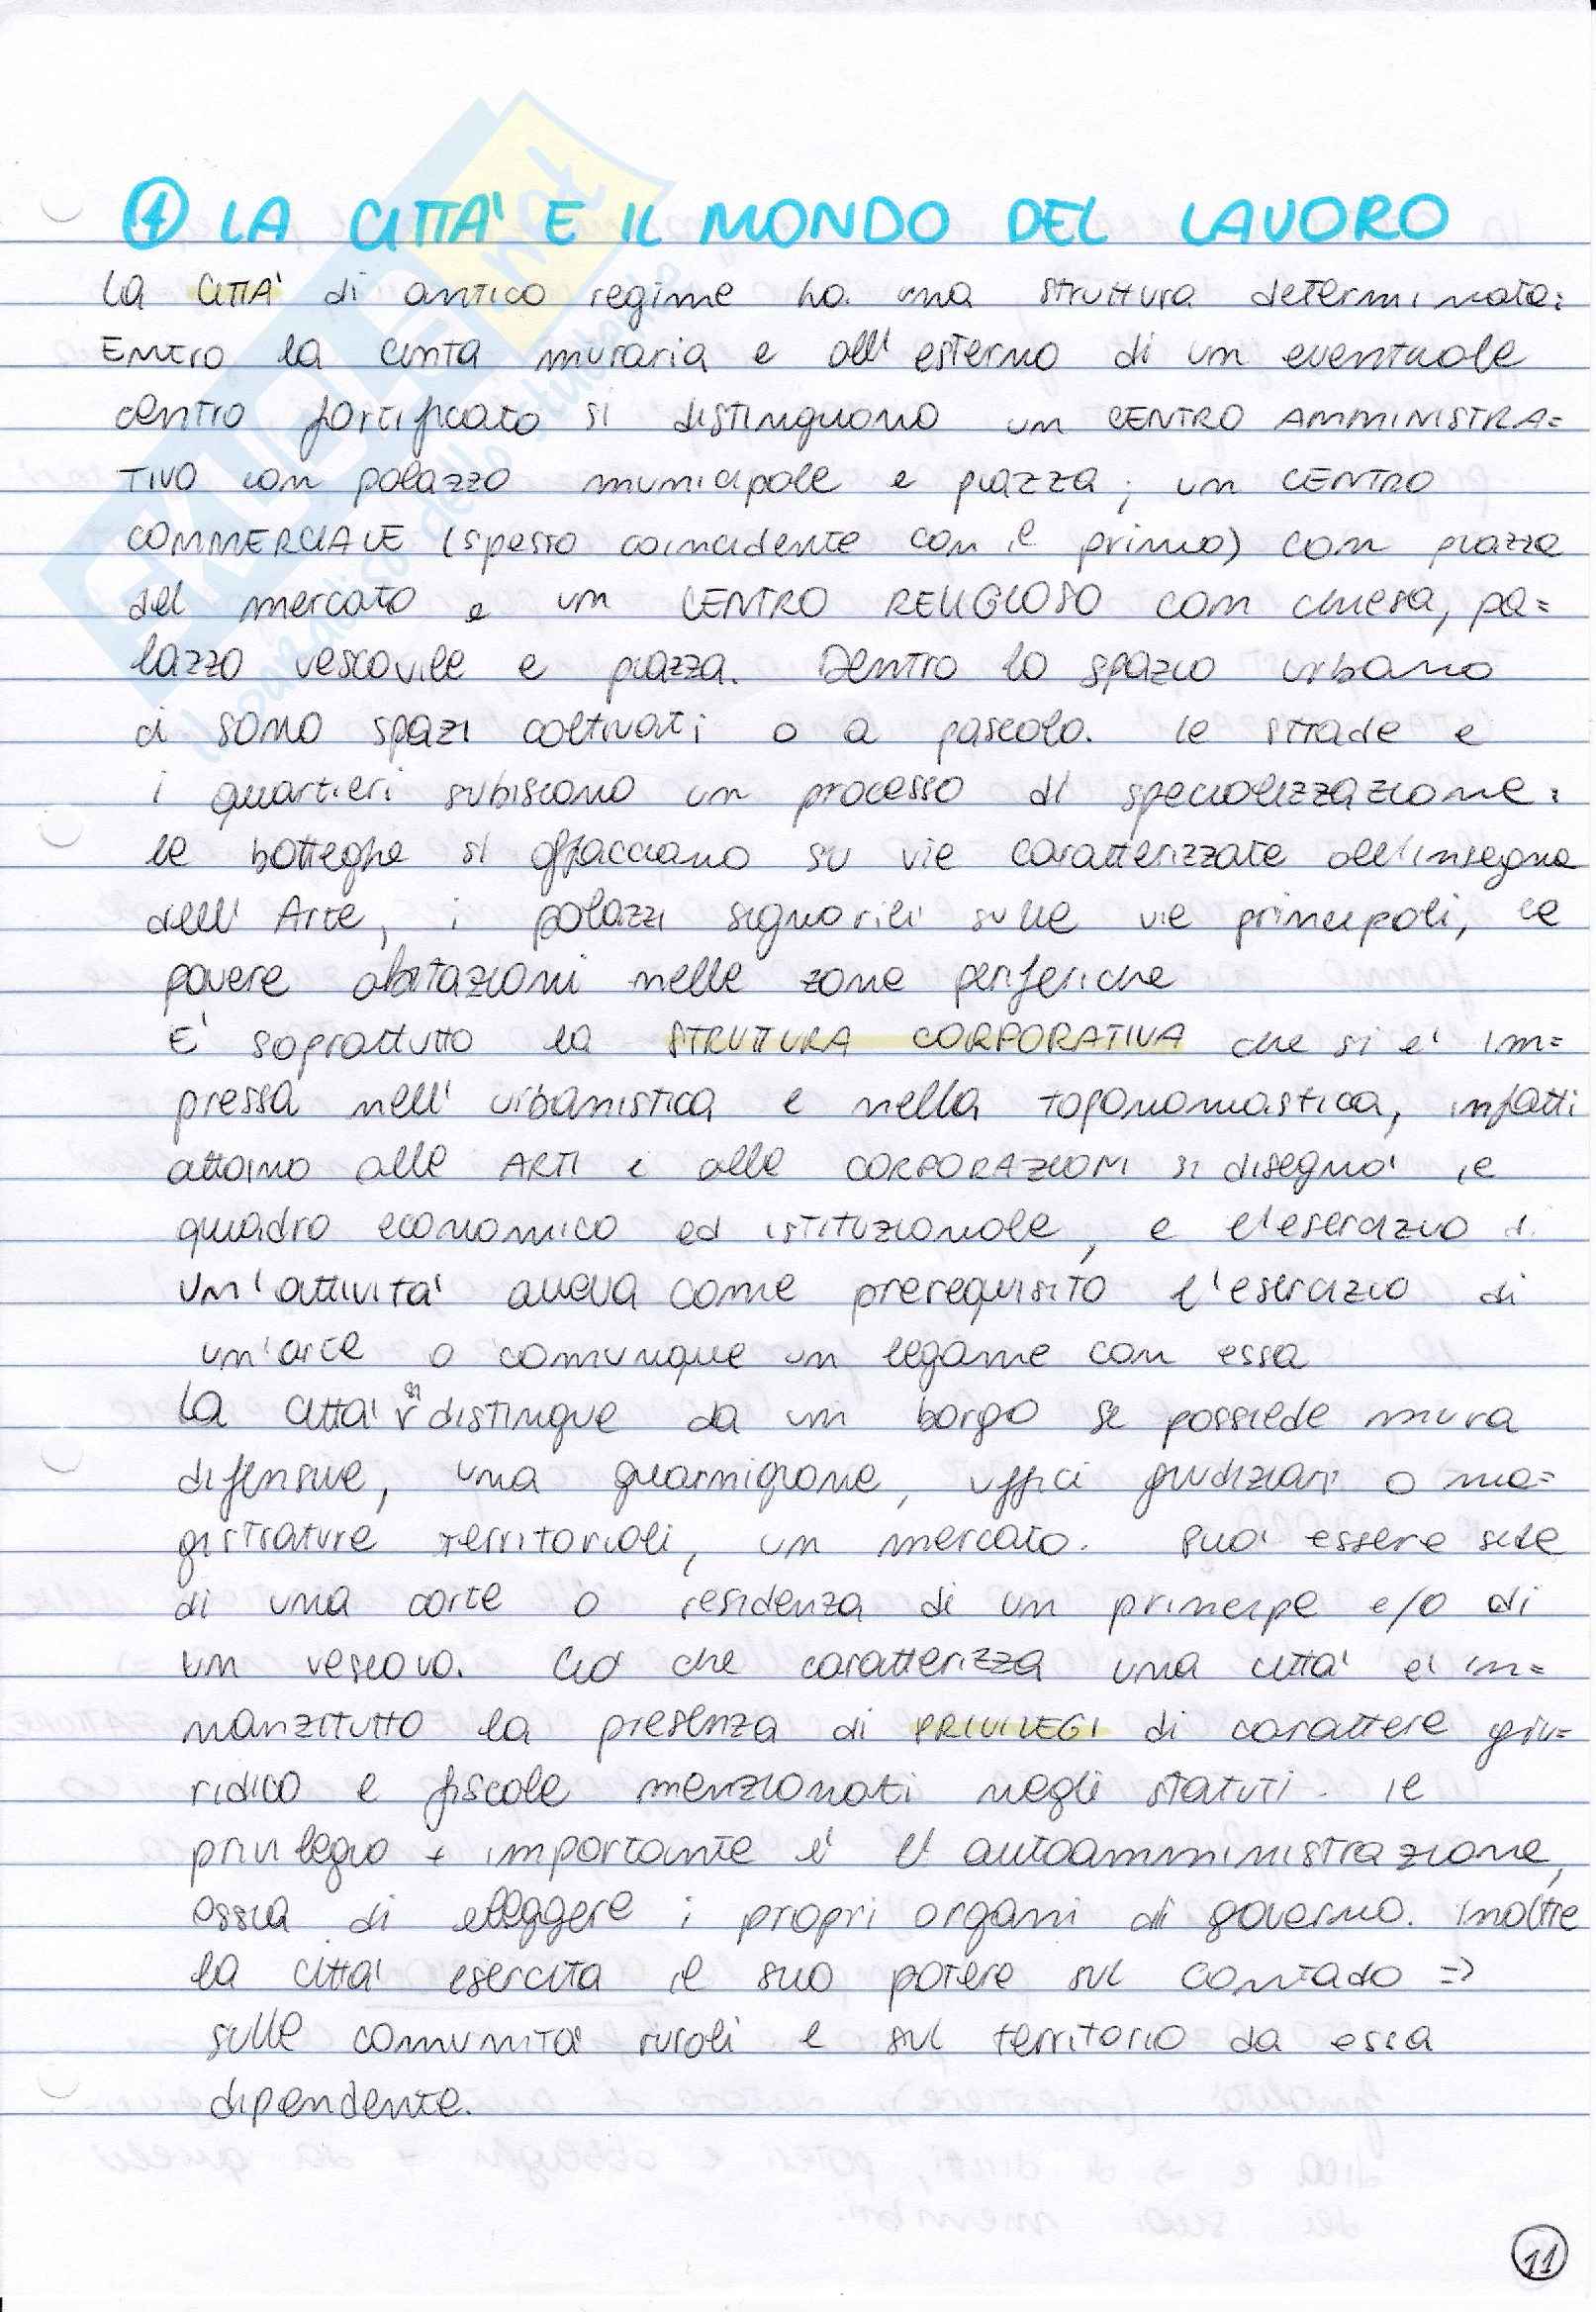 ④ LA CITTA' E IL MONDO DEL LAVORO
La CITTA' di antico regime ha una struttura determinata:
Entro la cinta muraria e all'esterno di un eventuale
centro fortificato si distinguono un CENTRO AMMINISTRA=
TIVO con palazzo municipale e piazza; un CENTRO
COMMERCIALE (spesso coincidente con il primo) con piazza
del mercato e un CENTRO RELIGIOSO con chiesa, pa=
lazzo vescovile e piazza. Dentro lo spazio urbano
ci sono spazi coltivati o a pascolo. Le strade e
i quartieri subiscono un processo di specializzazione:
le botteghe si affacciano su vie caratterizzate dall'insegna
dell'Arte, i palazzi signorili sulle vie principali, le
povere abitazioni nelle zone periferiche
E' soprattutto la STRUTTURA CORPORATIVA che si e' im=
pressa nell'urbanistica e nella toponomastica, infatti
attorno alle ARTI e alle CORPORAZIONI si disegno' il
quadro economico ed istituzionale, e l'esercizio di
un'attivita' aveva come prerequisito l'esercizio di
un'arte o comunque un legame con essa
La citta' si distingue da un borgo se possiede mura
difensive, una guarnigione, uffici giudiziari o ma=
gistrature territoriali, un mercato. Puo' essere sede
di una corte o residenza di un principe e/o di
un vescovo. Cio' che caratterizza una citta' e' in=
nanzitutto la presenza di PRIVILEGI di carattere giu=
ridico e fiscale menzionati negli statuti. Il
privilegio + importante e' l'autoamministrazione,
ossia di eleggere i propri organi di governo. Inoltre
la citta' esercita il suo potere sul contado =>
sulle comunita' rurali e sul territorio da essa
dipendente.
11